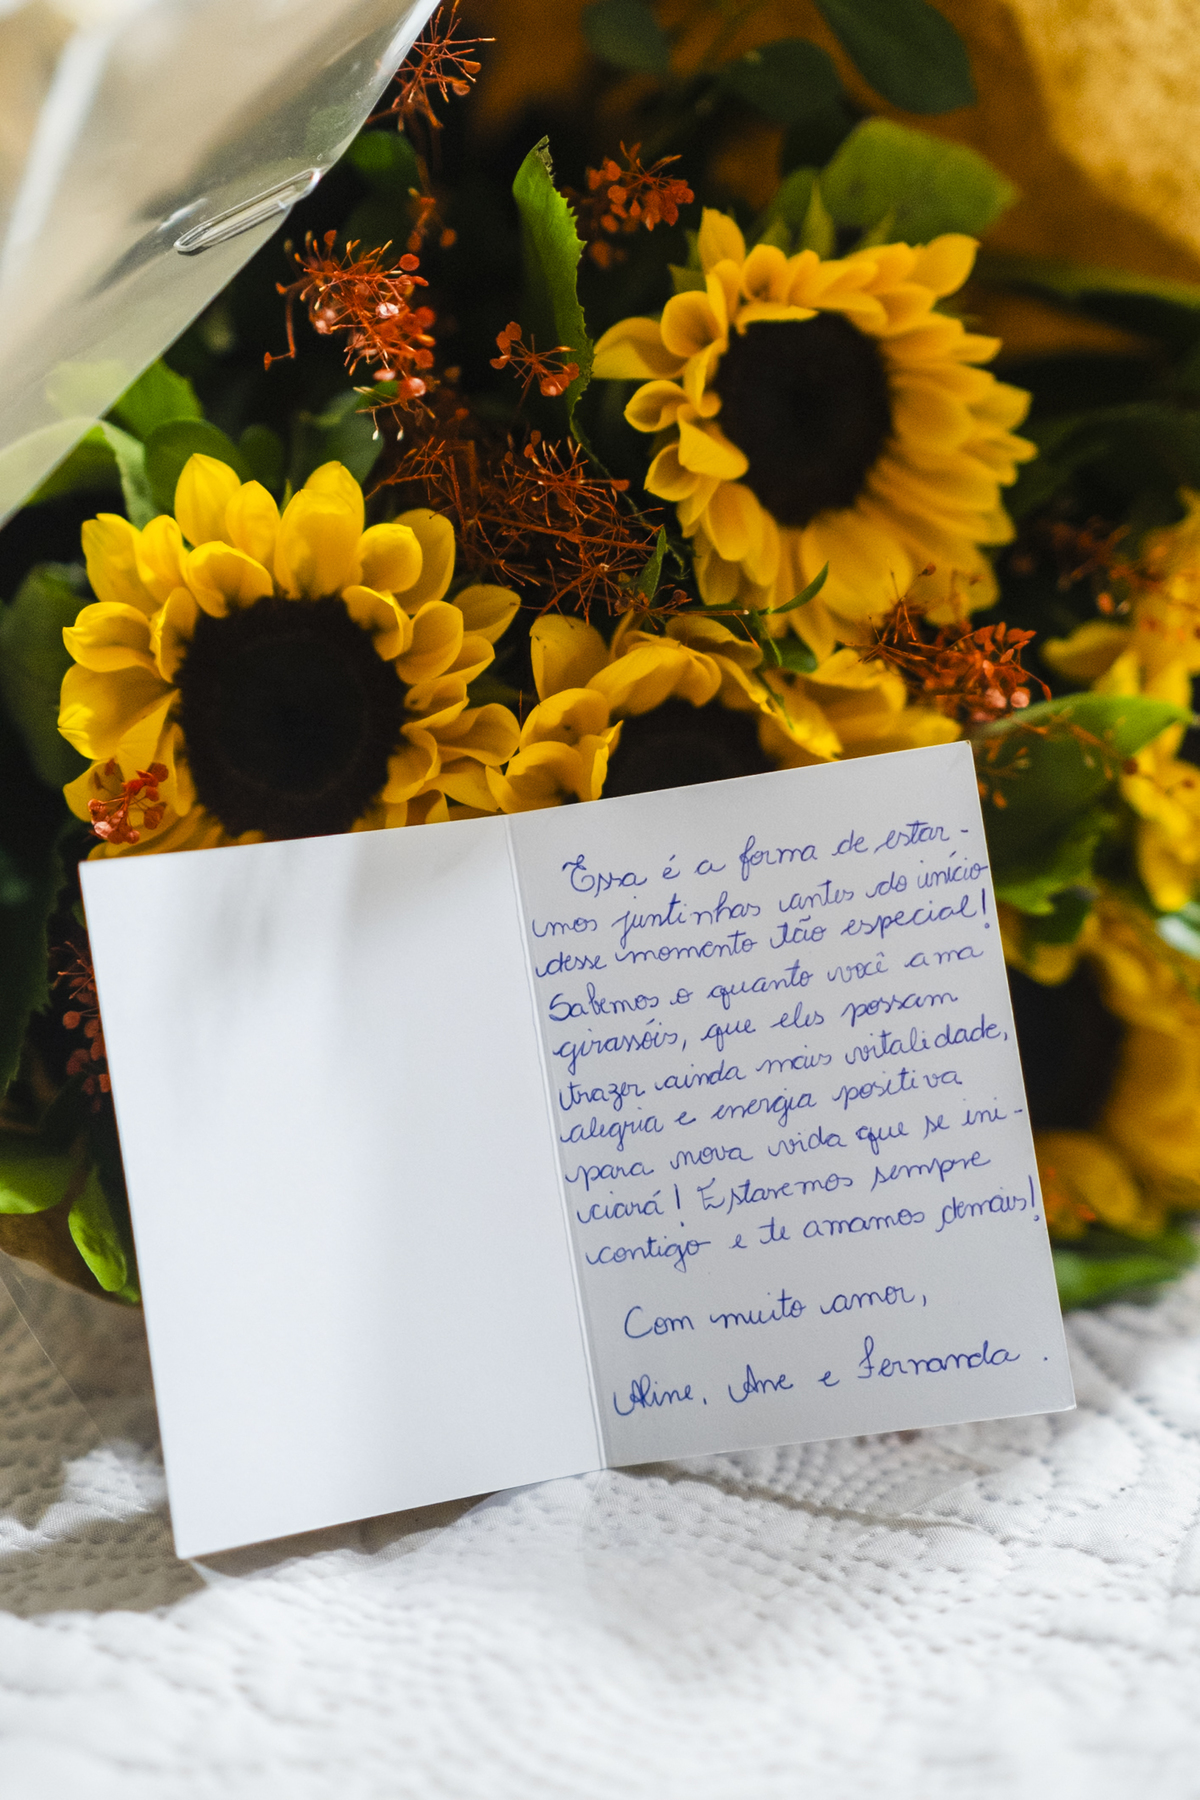 Essa é a forma de estar-
mos juntinhas antes do início
desse momento tão especial!
Sabemos o quanto você ama
girassóis, que eles possam
trazer ainda mais vitalidade,
alegria e energia positiva
para nova vida que se ini-
ciará! Estaremos sempre
contigo e te amamos demais!
Com muito amor,
Aline, Ane e Fernanda.